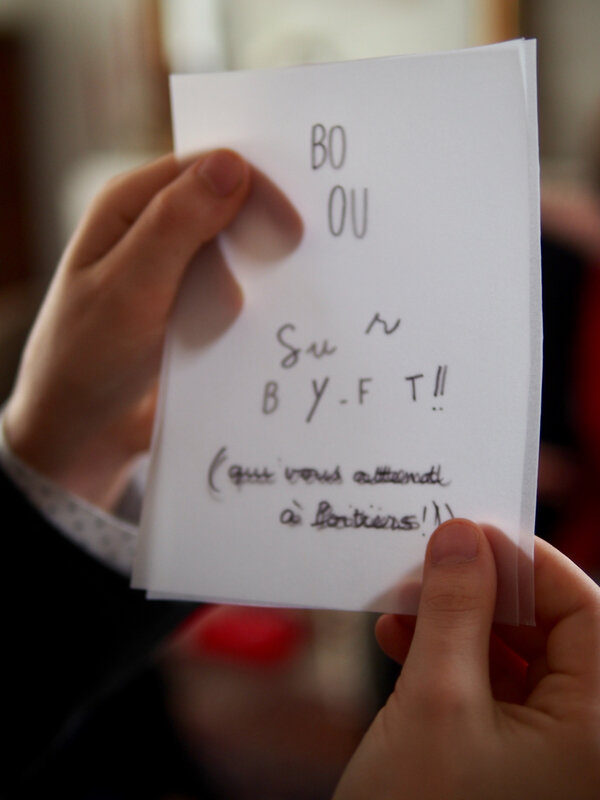 BO
OU
Su r
B Y-F T!!
(qui vous attend
à Poitiers!)